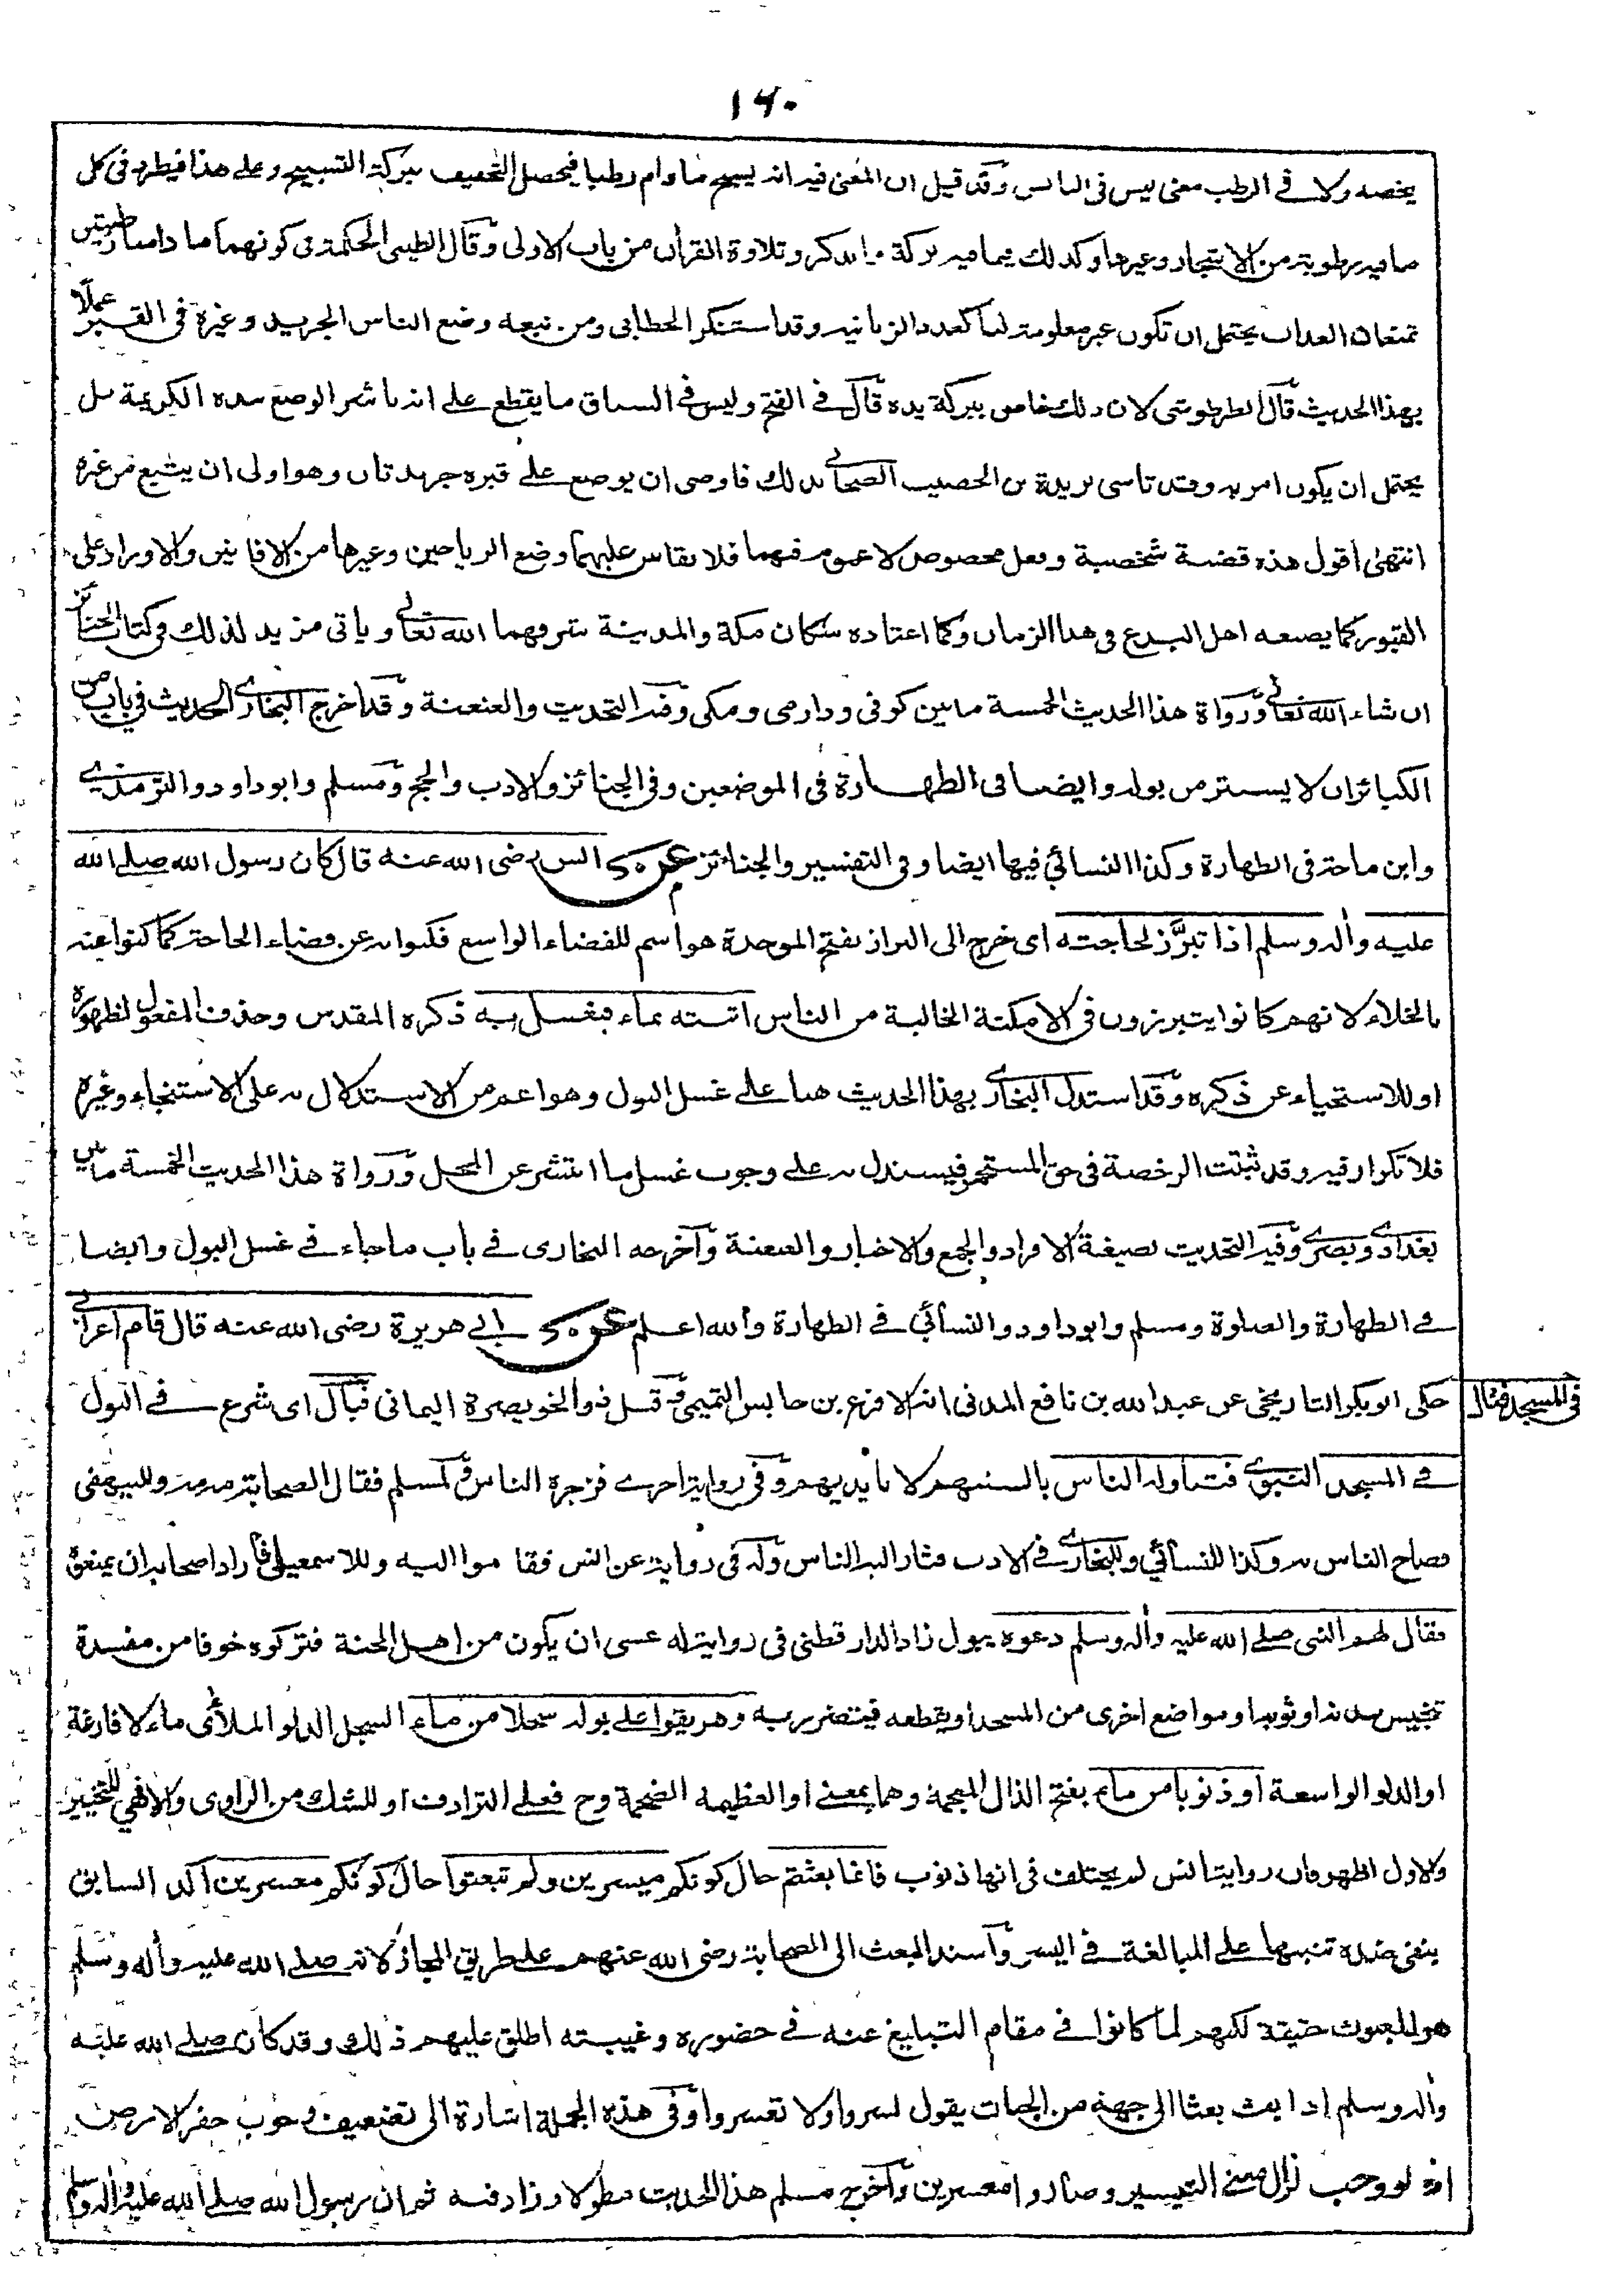 ١٦٠
يخصه ولا في الرطب معنى ليس في اليابس وقد قيل ان المعنى فيه انه يسبح ما دام رطبا فيحصل التخفيف ببركة التسبيح وعلى هذا فيطرد في كل
ما فيه رطوبة من الاشجار وغيرها وكذلك فيما فيه بركة كالذكر وتلاوة القرآن من باب الاولى وقال الطيبي الحكمة في كونهما ما دامتا رطبتين
تمنعان العذاب يحتمل ان تكون غير معلومة لنا كعدد الزبانية وقد استنكر الخطابي ومن تبعه وضع الناس الجريد وغيره في القبر عملًا
بهذا الحديث قال الطرطوشي لان ذلك خاص ببركة يده قال في الفتح وليس في السياق ما يقطع على انه باشر الوضع بيده الكريمة بل
يحتمل ان يكون امر به وقد تاسى بريدة بن الحصيب الصحابي بذلك فاوصى ان يوضع على قبره جريدتان وهو اولى ان يتبع من غيره
انتهى اقول هذه قضية شخصية وفعل مخصوص لا عموم فيهما فلا يقاس عليهما وضع الرياحين وغيرها من الافانين والاوراد على
القبور كما يصنعه اهل البدع في هذا الزمان وكما اعتاده سكان مكة والمدينة شرفهما الله تعالى وياتي مزيد لذلك في كتاب الجنائز
ان شاء الله تعالى ورواة هذا الحديث الخمسة ما بين كوفي ودارمي ومكي وفيه التحديث والعنعنة وقد اخرج البخاري الحديث في باب من
الكبائر ان لا يستتر من بوله وايضا في الطهارة في الموضعين وفي الجنائز والادب والحج ومسلم وابو داود والترمذي
وابن ماجة في الطهارة وكذا النسائي فيها ايضا وفي التفسير والجنائز عن انس رضى الله عنه قال كان رسول الله صلى الله
عليه وآله وسلم اذا تبرَّز لحاجته اى خرج الى البراز بفتح الموحدة هو اسم للفضاء الواسع فكنوا به عن قضاء الحاجة كما كنوا عنه
بالخلاء لانهم كانوا يتبرزون في الامكنة الخالية من الناس اتيته بماء فيغسل به ذكره المقدس وحذف المفعول لظهوره
او للاستحياء عن ذكره وقد استدل البخاري بهذا الحديث هنا على غسل البول وهو اعم من الاستدلال به على الاستنجاء وغيره
فلا تكرار فيه وقد ثبتت الرخصة في حق المستجمر فيستدل به على وجوب غسل ما انتشر عن المحل ورواة هذا الحديث الخمسة ما بين
بغدادي وبصري وفيه التحديث بصيغة الافراد والجمع والاخبار والعنعنة وآخرجه البخارى في باب ما جاء في غسل البول وايضا
في الطهارة والصلوة ومسلم وابو داود والنسائي في الطهارة والله اعلم عن ابي هريرة رضى الله عنه قال قام اعرابي
في المسجد فبال
حكى ابو بكر التاريخى عن عبد الله بن نافع المدنى انه الاقرع بن حابس التميمي وقيل ذو الخويصرة اليمانى فبال اى شرع في البول
في المسجد النبوي فتناوله الناس بالسنتهم لا بأيديهم وفي رواية اخرى فزجره الناس ولمسلم فقال الصحابة مه مه وللبيهقى
فصاح الناس به وكذا للنسائي وللبخاري في الادب فثار اليه الناس وله في رواية عن انس فقاموا اليه وللاسمعيلى فأراد اصحابه ان يمنعوه
فقال لهم النبى صلى الله عليه وآله وسلم دعوه يبول زاد الدارقطنى في روايته له عسى ان يكون من اهل الجنة فتركوه خوفا من مفسدة
تنجيس بدنه او ثوبه او مواضع اخرى من المسجد او يقطعه فيتضرر به وهريقوا على بوله سجلا من ماء السجل الدلو الملأى ماء لا فارغة
او الدلو الواسعة او ذنوبا من ماء بفتح الذال المعجمة وهما بمعنى او العظيمة الضخمة وح فعلى الترادف او للشك من الراوى والا فهي للتخيير
والاول اظهر فان رواية انس لم يختلف في انها ذنوب فانما بعثتم حال كونكم ميسرين ولم تبعثوا حال كونكم معسرين اكد السابق
بنفى ضده تنبيها على المبالغة في اليسر وآسند البعث الى الصحابة رضى الله عنهم على طريق المجاز لانه صلى الله عليه وآله وسلم
هو المبعوث حقيقة لكنهم لما كانوا في مقام التبليغ عنه في حضوره وغيبته اطلق عليهم ذلك وقد كان صلى الله عليه
وآله وسلم اذا بعث بعثا الى جهة من الجهات يقول يسروا ولا تعسروا وفي هذه الجملة اشارة الى تضعيف وجوب حفر الارض
اذ لو وجب لزال معنى التيسير وصاروا معسرين وآخرج مسلم هذا الحديث مطولا وزاد فيه ثم ان رسول الله صلى الله عليه وآله وسلم